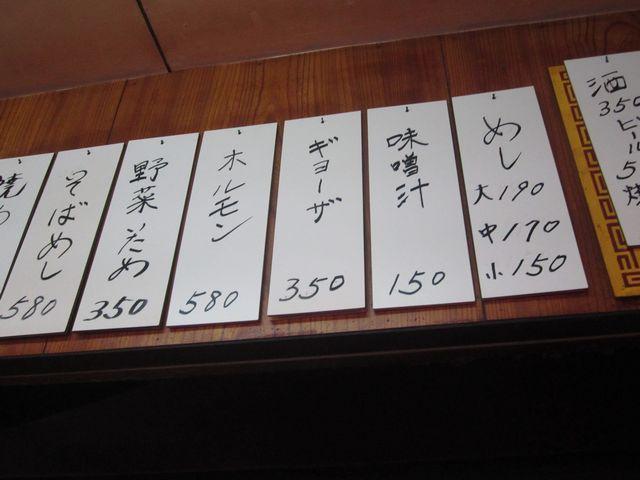 酒
350
ビル
5
焼
めし
大190
中170
小150
味噌汁
150
ギョーザ
350
ホルモン
580
野菜いため
350
そばめし
580
焼